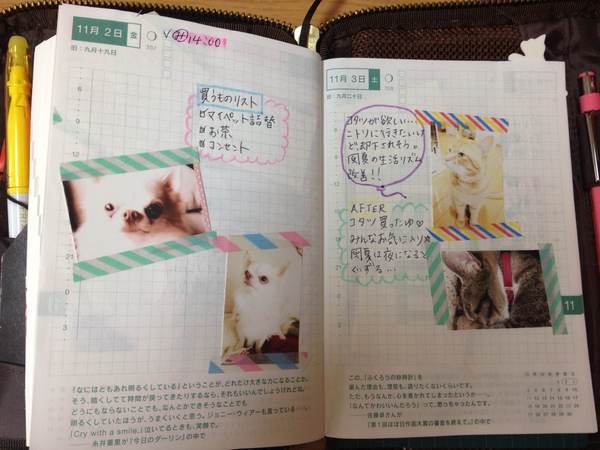 11月2日 金
307
旧:九月十九日
14:00
買うものリスト
マイペット詰替
お茶
コンセント
「なにはともあれ明るくしている」ということが、どれだけ大きな力になることか。
そう、暗くしてて時間が戻ってきたりするなら、それもいいんでしょうけどね。
どうにもならないことでも、なんとかできそうなことでも
明るくしていたほうが、うまくいくと思う。ジョニー・ウィアーも言っている
「Cry with a smile.」泣いてるときも、笑顔で。
糸井重里が『今日のダーリン』の中で
11月3日 土
308
旧:九月二十日
コタツが欲しい…
ニトリに行きたいけ
ど却下されそう。
の生活リズム
改善!!
AFTER
コタツ買ったゆ♡
みんなお気に入り
は夜になると
ぐずる…
11
この、「ふくろうの砂時計」を
選んだ理由も、理屈も、語りたくないくらいです。
ただ、もうなんか、心を奪われてしまったというか……。
「なんてかわいいんだろう」って、思っちゃったんだ。
「第1回ほぼ日作品大賞の審査を終えて。」の中で